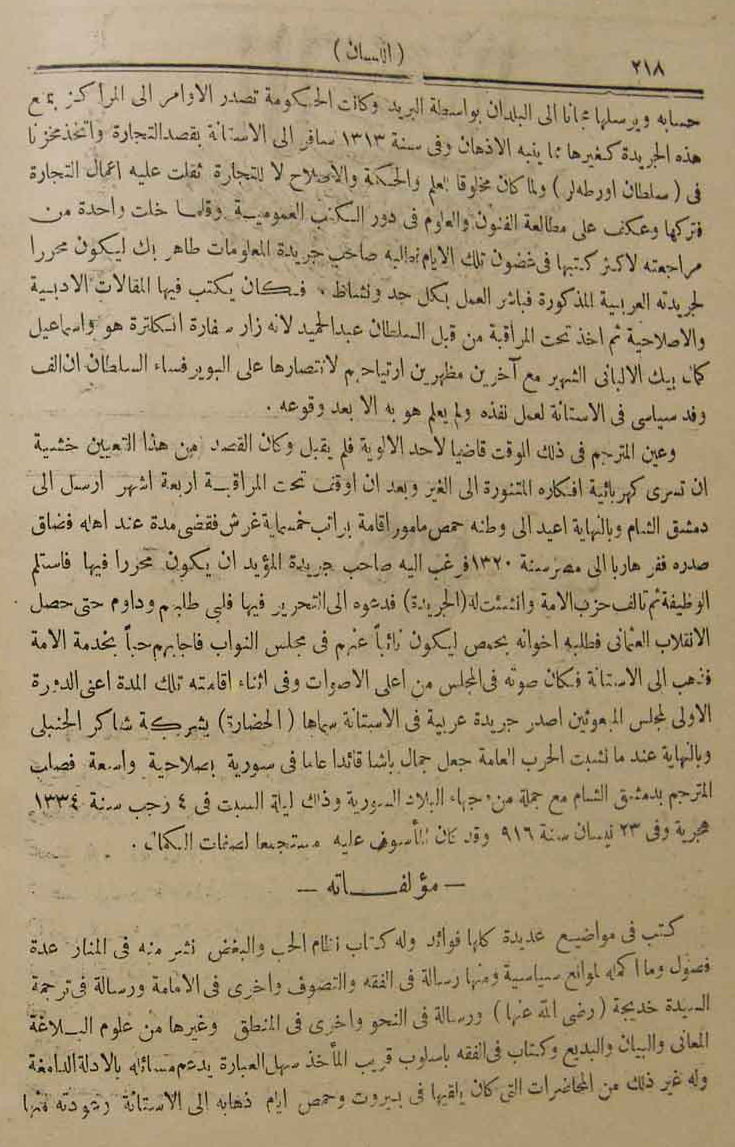 ٢١٨
( الانسان )
حسابه ويرسلها مجانا الى البلدان بواسطة البريد وكانت الحكومة تصدر الاوامر الى المراكز بمنع
هذه الجريدة كغيرها مما ينبه الاذهان وفى سنة ١٣١٣ سافر الى الاستانة بقصد التجارة واتخذ مخزنا
فى ( سلطان اورطه لر ) ولما كان مخلوقا للعلم والحكمة والاصلاح لا للتجارة ثقلت عليه اعمال التجارة
فتركها وعكف على مطالعة الفنون والعلوم فى دور الكتب العمومية وقلما خلت واحدة من
مراجعته لاكثر كتبها فى غضون تلك الايام طلبه صاحب جريدة المعلومات طاهر بك ليكون محررا
لجريدته العربية المذكورة فباشر العمل بكل جد ونشاط . فكان يكتب فيها المقالات الادبية
والاصلاحية ثم اخذ تحت المراقبة من قبل السلطان عبدالحميد لانه زار سفارة انكلترة هو واسماعيل
كمال بيك الالبانى الشهير مع آخرين مظهرين ارتياحهم لانتصارها على البوير فساء السلطان ان الف
وفد سياسى فى الاستانة لعمل نفذه ولم يعلم هو به الا بعد وقوعه .
وعين المترجم فى ذلك الوقت قاضيا لاحد الالوية فلم يقبل وكان القصد من هذا التعيين خشية
ان تسرى كهربائية افكاره المتنورة الى الغير وبعد ان اوقف تحت المراقبة اربعة اشهر ارسل الى
دمشق الشام وبالنهاية اعيد الى وطنه حمص مامور اقامة براتب خمسماية غرش فقضى مدة عند اهله فضاق
صدره ففر هاربا الى مصر سنة ١٣٢٠ فرغب اليه صاحب جريدة المؤيد ان يكون محررا فيها فاستلم
الوظيفة ثم تالف حزب الامة وانشئت له (الجريدة) فدعوه الى التحرير فيها فلبى طلبهم وداوم حتى حصل
الانقلاب العثمانى فطلبه اخوانه بحمص ليكون نائباً عنهم فى مجلس النواب فاجابهم حباً بخدمة الامة
فذهب الى الاستانة فكان صوته فى المجلس من اعلى الاصوات وفى اثناء اقامته تلك المدة اعنى الدورة
الاولى لمجلس المبعوثين اصدر جريدة عربية فى الاستانة سماها ( الحضارة ) بشركة شاكر الحنبلى
وبالنهاية عند ما نشبت الحرب العامة جعل جمال باشا قائدا عاما فى سورية بصلاحية واسعة فصلب
المترجم بدمشق الشام مع جملة من وجهاء البلاد السورية وذلك ليلة السبت فى ٤ رجب سنة ١٣٣٤
هجرية وفى ٢٣ نيسان سنة ٩١٦ وقد كان المأسوف عليه مستجمعا لصفات الكمال .
— مؤلفـــاته —
كتب فى مواضيع عديدة كلها فوائد وله كتاب نظام الحب والبغض نشر منه فى المنار عدة
فصول وما اكمله لموانع سياسية ومنها رسالة فى الفقه والتصوف واخرى فى الامامة ورسالة فى ترجمة
السيدة خديجة ( رضى الله عنها ) ورسالة فى النحو واخرى فى المنطق وغيرها من علوم البلاغة
المعانى والبيان والبديع وكتاب فى الفقه باسلوب قريب المأخذ سهل العبارة يدعم مسائله بالادلة الدامغة
وله غير ذلك من المحاضرات التى كان يلقيها فى بيروت وحمص ايام ذهابه الى الاستانة وعودته منها